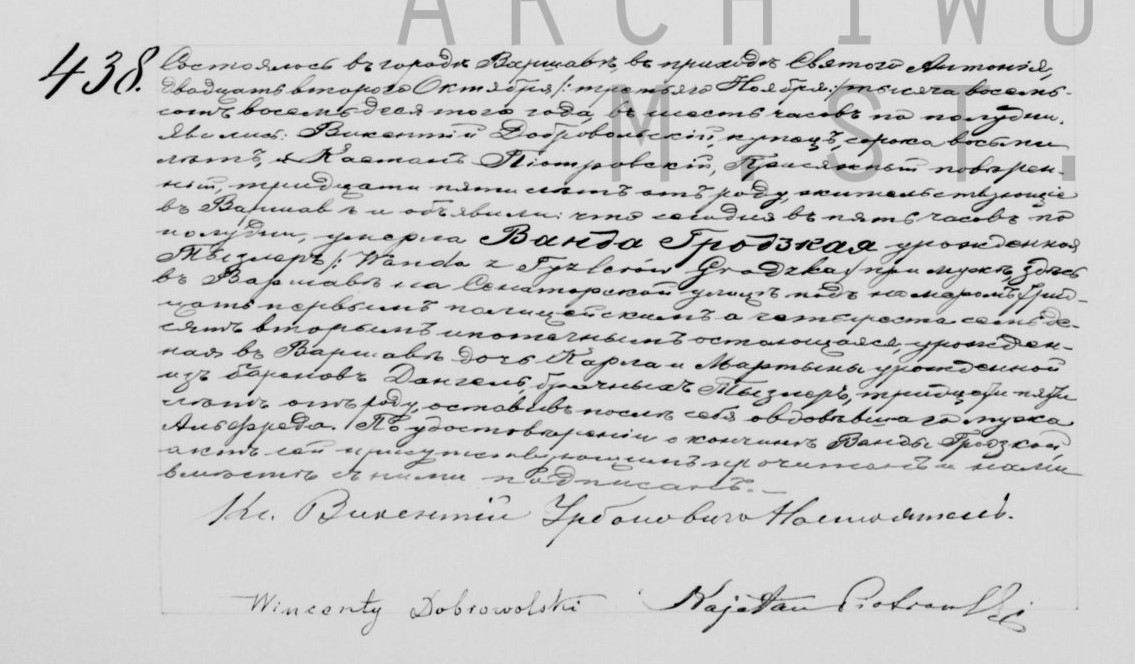 ARCHIWU
M ST.
438.
Состоялось въ городѣ Варшавѣ, въ приходѣ Святого Антонія,
двадцать второго Октября /: третьяго Ноября :/ тысяча восемь-
сотъ восемьдесятого года, въ шесть часовъ по полудни.
Явились: Викентій Добровольскій, купецъ, сорока восьми
лѣтъ, и Каетанъ Піотровскій, Присяжный повѣрен-
ный, тридцати пяти лѣтъ отъ роду, жительствующіе
въ Варшавѣ и объявили: что сегодня въ пять часовъ по
полудни, умерла Ванда Гродзкая урожденная
Тызлеръ /: Wanda z Tyzlerów Grodzka :/ при мужѣ, здѣсь
въ Варшавѣ на Сенаторской улицѣ подъ номеромъ трид-
цать первымъ полицейскимъ а четыреста семьде-
сятъ вторымъ ипотечнымъ остающаяся, урожден-
ная въ Варшавѣ дочь Карла и Мартыны урожденной
изъ бароновъ Дангель, брачныхъ Тызлеръ, тридцати пяти
лѣтъ отъ роду, оставивъ послѣ себя овдовѣвшаго мужа
Альфреда. По удостовѣреніи о кончинѣ Ванды Гродзкой,
актъ сей присутствующимъ прочитанъ и нами
вмѣстѣ съ ними подписанъ.—
Кс. Викентій Урбановичъ Настоятель.
Wincenty Dobrowolski Kajetan Piotrowski